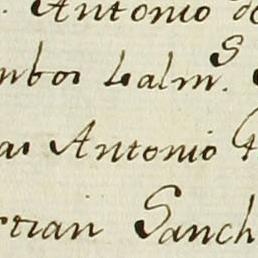 . Antonio de
mbos Lalmˢ.
as Antonio
rtian Sanch